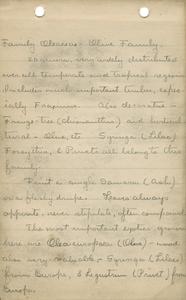 Family Oleaceae - Olive Family.
Large fam, very widely distributed
over all temperate and tropical regions
Includes much important timber, espec-
ially Fraxinus. Also decorative -
Fringe-tree (chionanthus) and horticul-
tural - Olive, etc. Syringa (Lilac)
Forsythia, & Privet all belong to this
family.
Fruit a single Samara (Ash)
or a fleshy drupe. Leaves always
opposite, never stipulate, often compound
The most important species, grown
here are Olea europaea (Olive) - wood
also very valuable, Syringa (Lilac)
from Europe, & Ligustrum (Privet) from
Europe.